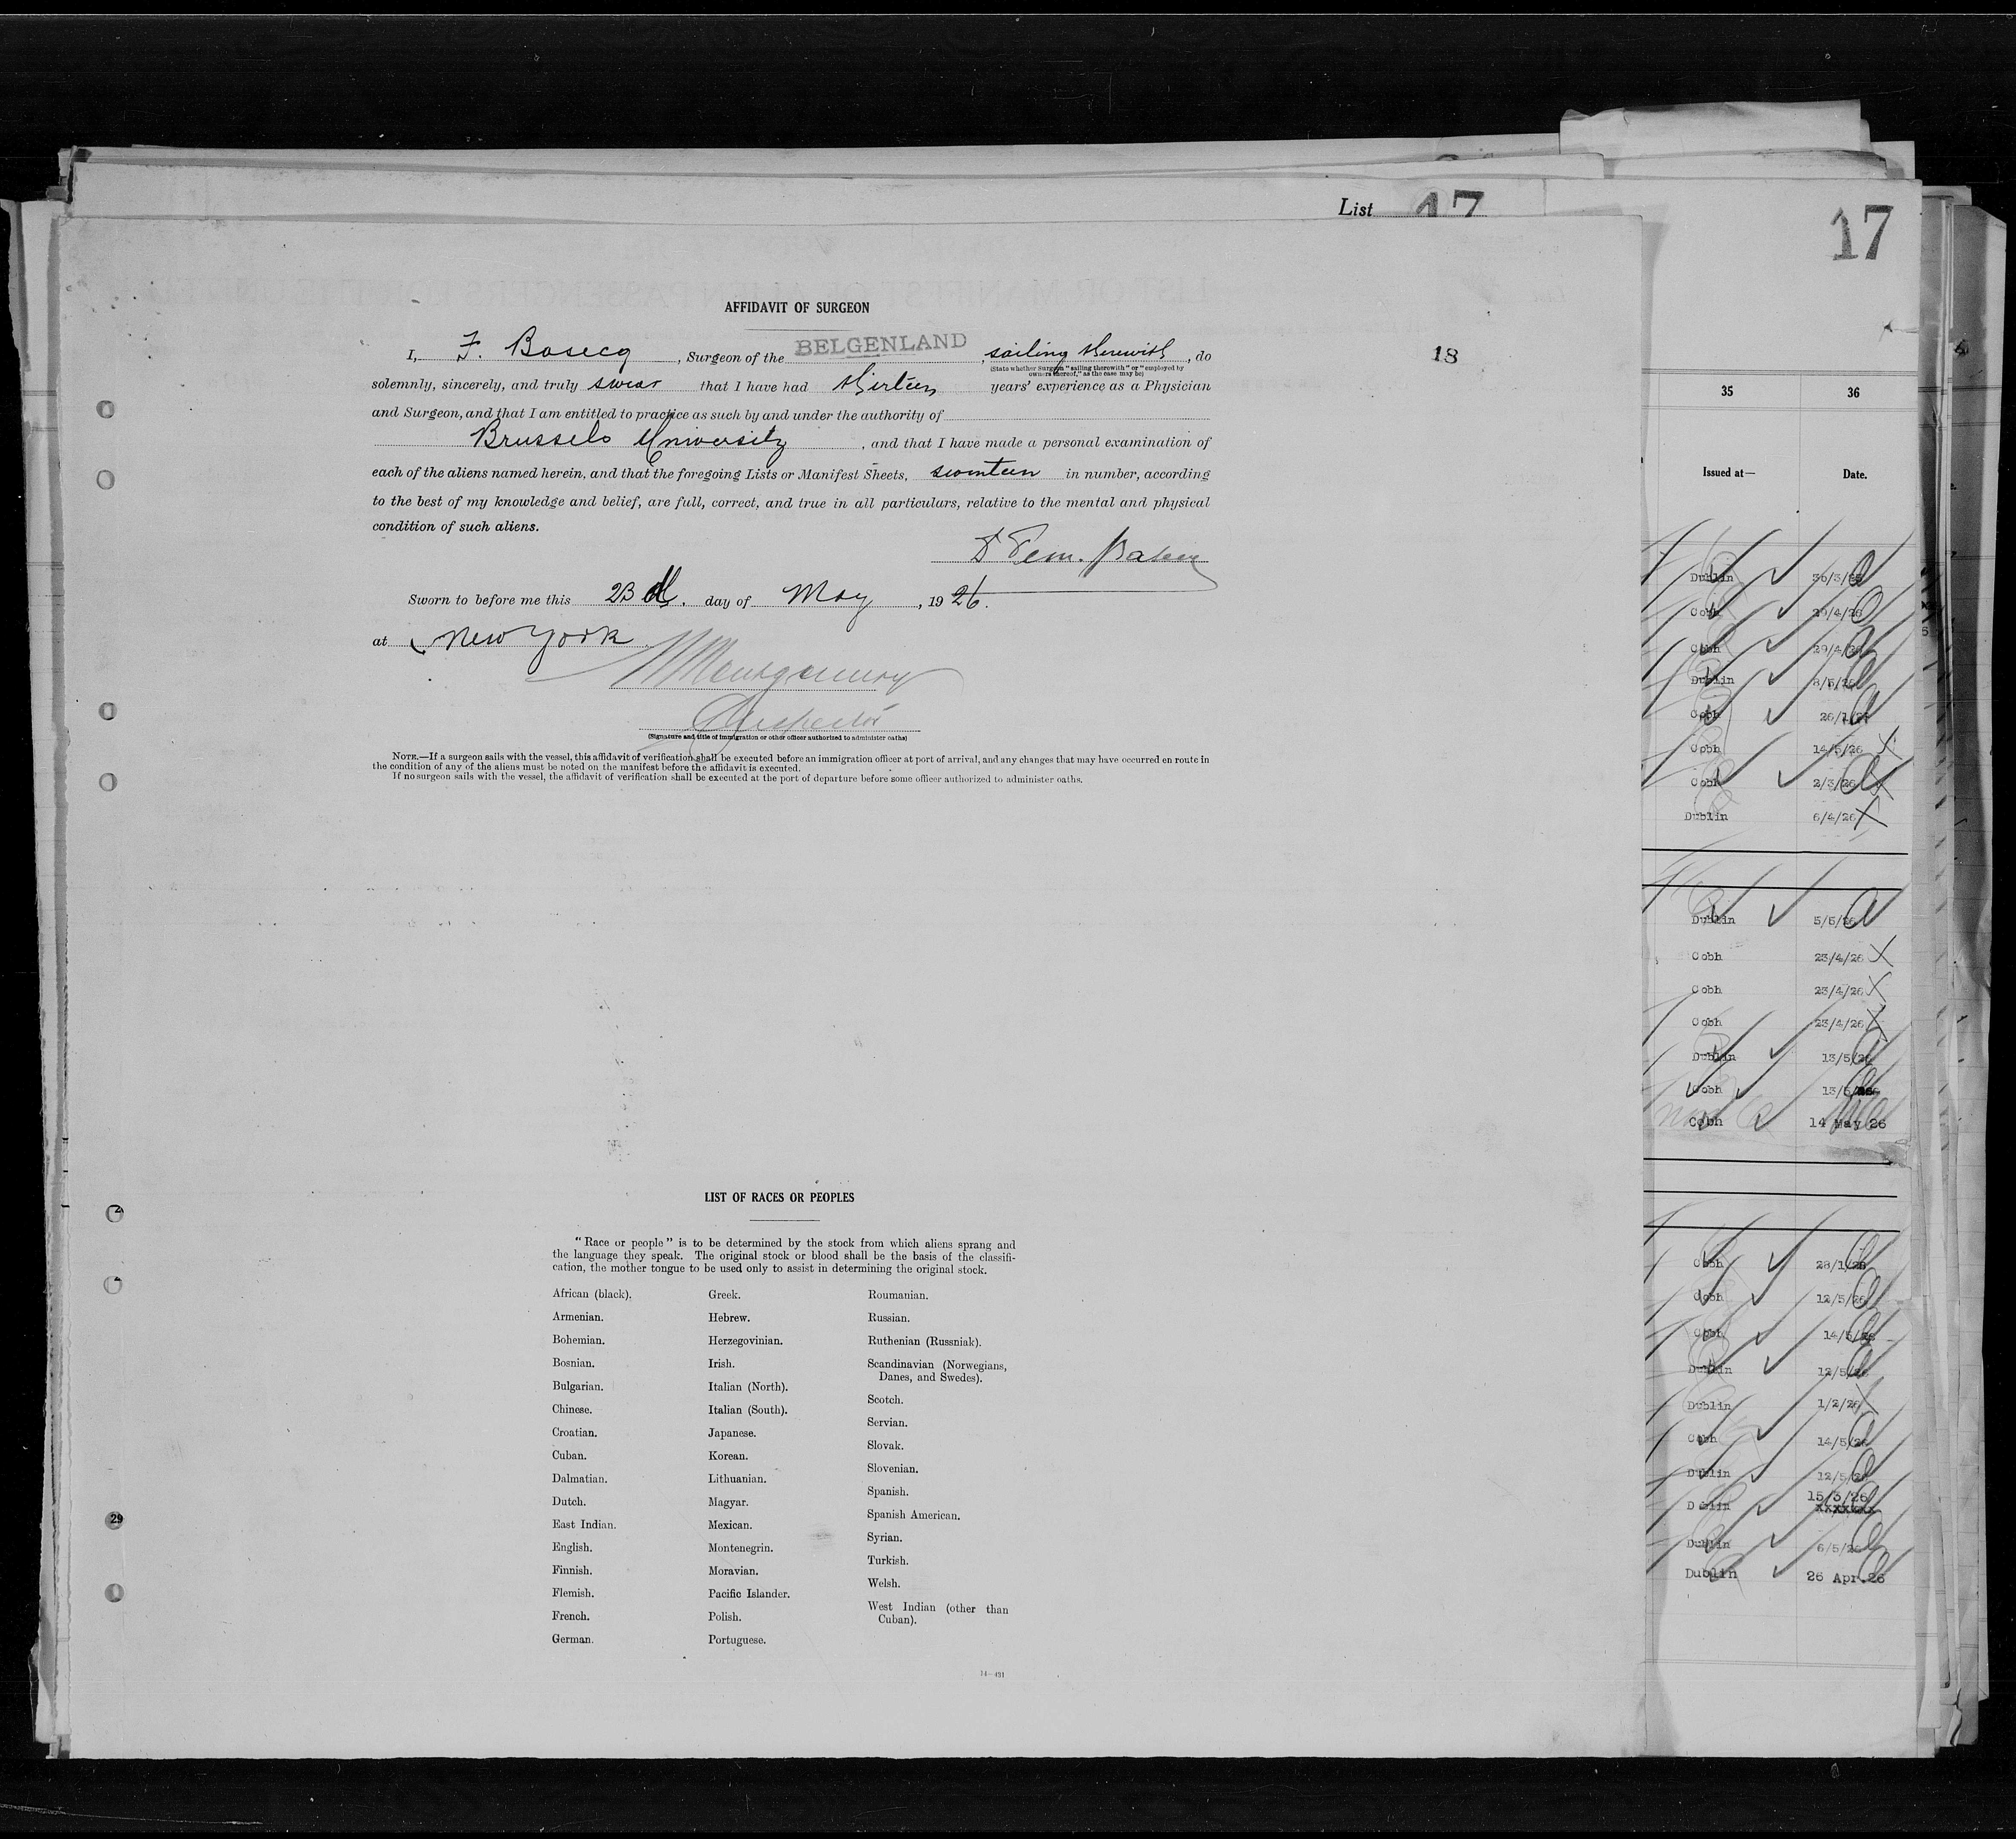 List 17
17
AFFIDAVIT OF SURGEON
I, F. Bosecq, Surgeon of the BELGENLAND, sailing therewith, do
(State whether Surgeon "sailing therewith" or "employed by
owners thereof," as the case may be)
18
solemnly, sincerely, and truly swear that I have had thirteen years' experience as a Physician
and Surgeon, and that I am entitled to practice as such by and under the authority of
Brussels University, and that I have made a personal examination of
each of the aliens named herein, and that the foregoing Lists or Manifest Sheets, seventeen in number, according
to the best of my knowledge and belief, are full, correct, and true in all particulars, relative to the mental and physical
condition of such aliens.
Sworn to before me this 23d. day of May, 1926.
at New York
Montgomery
Inspector
(Signature and title of immigration or other officer authorized to administer oaths)
NOTE.—If a surgeon sails with the vessel, this affidavit of verification shall be executed before an immigration officer at port of arrival, and any changes that may have occurred en route in
the condition of any of the aliens must be noted on the manifest before the affidavit is executed.
If no surgeon sails with the vessel, the affidavit of verification shall be executed at the port of departure before some officer authorized to administer oaths.
LIST OF RACES OR PEOPLES
"Race or people" is to be determined by the stock from which aliens sprang and
the language they speak. The original stock or blood shall be the basis of the classifi-
cation, the mother tongue to be used only to assist in determining the original stock.
African (black).
Armenian.
Bohemian.
Bosnian.
Bulgarian.
Chinese.
Croatian.
Cuban.
Dalmatian.
Dutch.
East Indian.
English.
Finnish.
Flemish.
French.
German.
Greek.
Hebrew.
Herzegovinian.
Irish.
Italian (North).
Italian (South).
Japanese.
Korean.
Lithuanian.
Magyar.
Mexican.
Montenegrin.
Moravian.
Pacific Islander.
Polish.
Portuguese.
Roumanian.
Russian.
Ruthenian (Russniak).
Scandinavian (Norwegians,
Danes, and Swedes).
Scotch.
Servian.
Slovak.
Slovenian.
Spanish.
Spanish American.
Syrian.
Turkish.
Welsh.
West Indian (other than
Cuban).
14—491
29
35 36
Issued at— Date.
Dublin
Cobh 29/4/26
Cobh 29/4/26
Dublin
Cobh
Cobh 14/5/26
Cobh 2/3/26
Dublin 6/4/26
Dublin 5/5/26
Cobh 23/4/26
Cobh 23/4/26
Cobh 23/4/26
Dublin 13/5/26
Cobh
Cobh 14 May 26
Cobh 28/1/26
Cobh 12/5/26
Cobh 14/5/26
Dublin 12/5/26
Dublin 1/2/26
Cobh 14/5/26
Dublin 12/5/26
Dublin 15/3/26
xxxxxxx
Dublin 6/5/26
Dublin 26 Apr.26